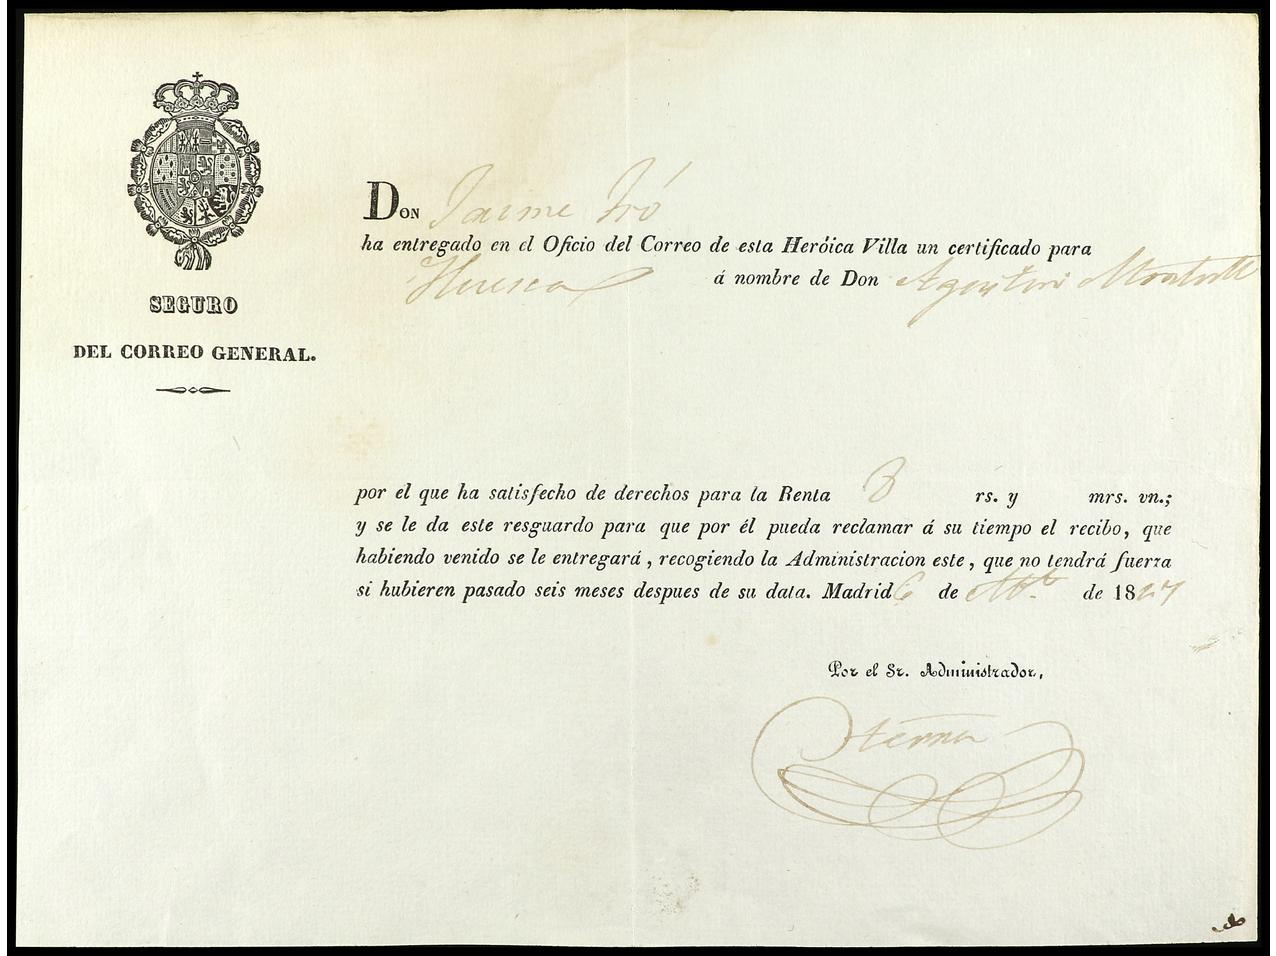 SEGURO
DEL CORREO GENERAL.
DON Jaime Iró
ha entregado en el Oficio del Correo de esta Heróica Villa un certificado para
Huesca á nombre de Don Agustin
por el que ha satisfecho de derechos para la Renta 8 rs. y mrs. vn.;
y se le da este resguardo para que por él pueda reclamar á su tiempo el recibo, que
habiendo venido se le entregará, recogiendo la Administracion este, que no tendrá fuerza
si hubieren pasado seis meses despues de su data. Madrid 6 de de 1827
Por el Sr. Administrador,